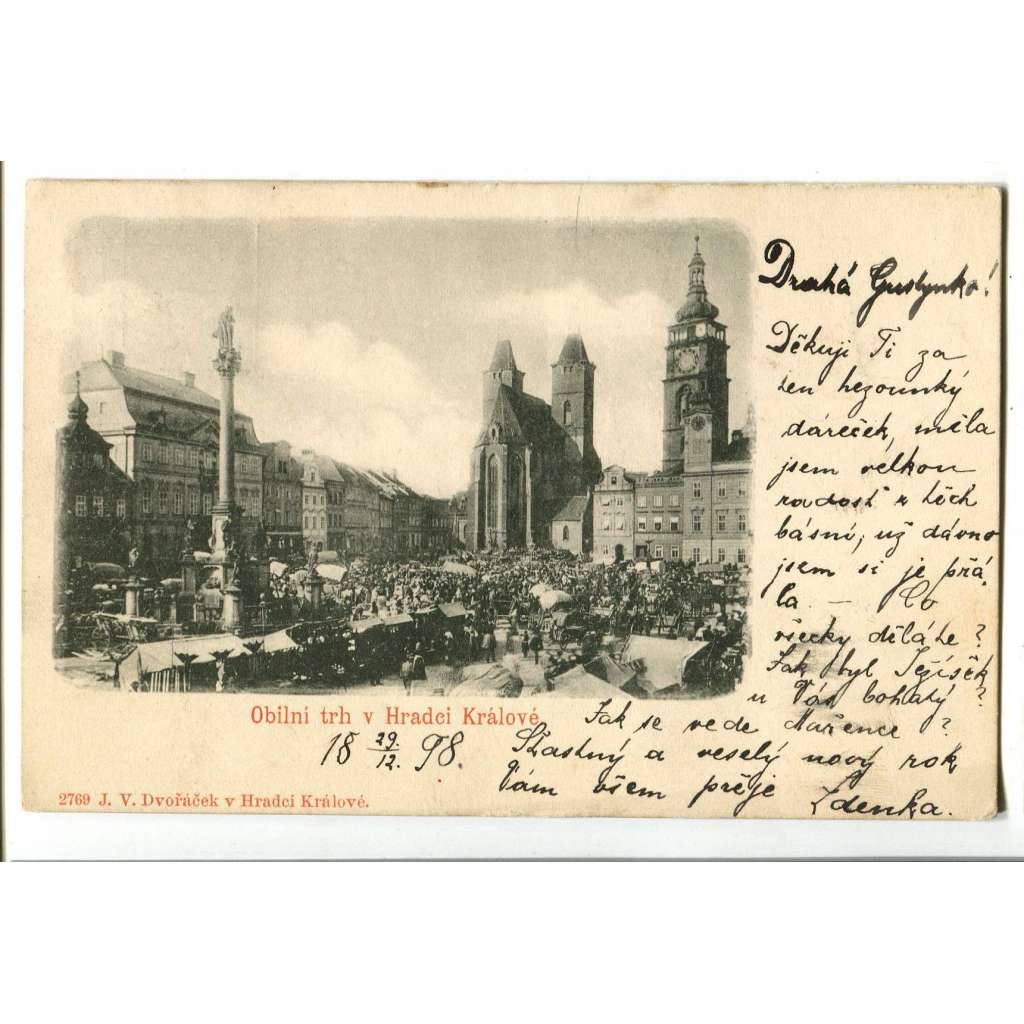 Drahá Gustynko!
Děkuji Ti za
ten hezounký
dáreček, měla
jsem velkou
radost z těch
básní, už dávno
jsem si je přá,
la. — Co
všecky děláte?
Jak byl Ježíšek
u Vás bohatý?
Jak se vede Mařence?
Šťastný a veselý nový rok
Vám všem přeje Zdenka.
Obilní trh v Hradci Králové
18 29./12. 98.
2769 J. V. Dvořáček v Hradci Králové.